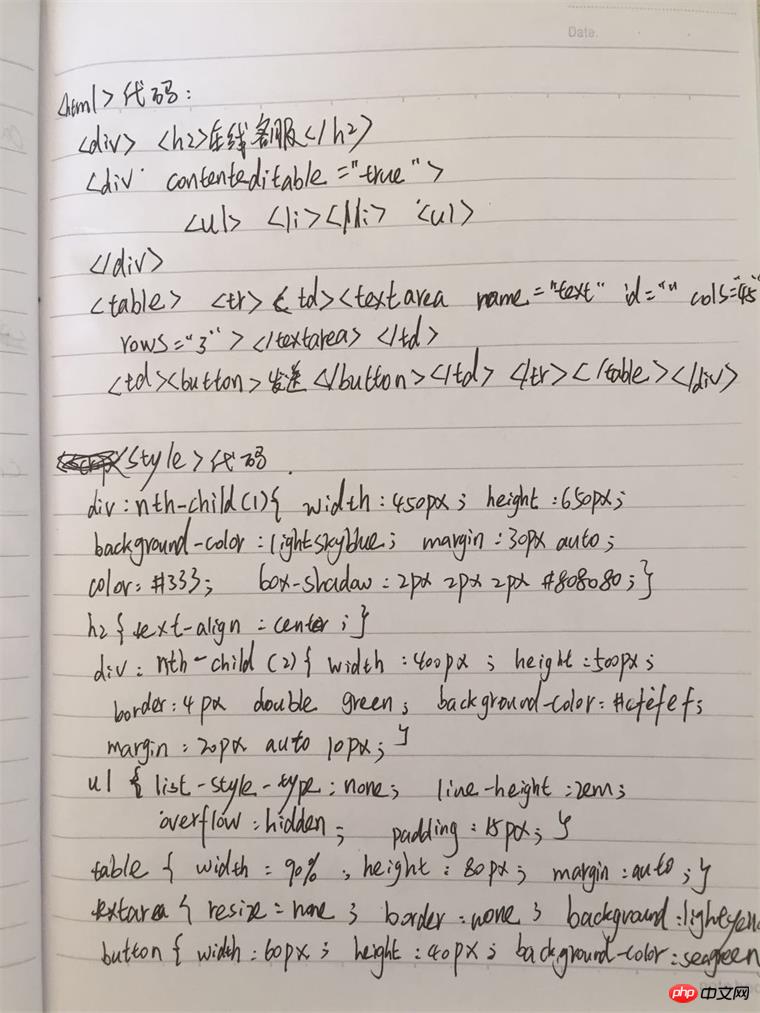 Date.
<html>代码:
<div> <h2>在线客服</h2>
<div contenteditable="true">
<ul> <li></li> <ul>
</div>
<table> <tr> <td><textarea name="text" id="" cols="45"
rows="3"></textarea> </td>
<td><button>发送</button></td> </tr></table></div>
<style>代码
div:nth-child(1){ width:450px; height:650px;
background-color:lightskyblue; margin:30px auto;
color:#333; box-shadow:2px 2px 2px #808080;}
h2{text-align:center;}
div:nth-child(2){ width:400px; height:500px;
border:4px double green; background-color:#cfefef;
margin:20px auto 10px;}
ul { list-style-type:none; line-height:2em;
overflow:hidden; padding:15px;}
table { width:90%; height:80px; margin:auto;}
textarea { resize:none; border:none; background:lightyen
button { width:60px; height:40px; background-color:seagreen
php 中文网